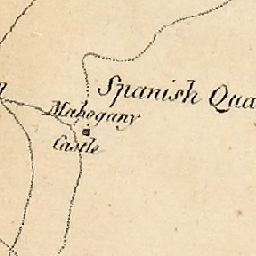 Spanish Qua
Mahogany
Castle